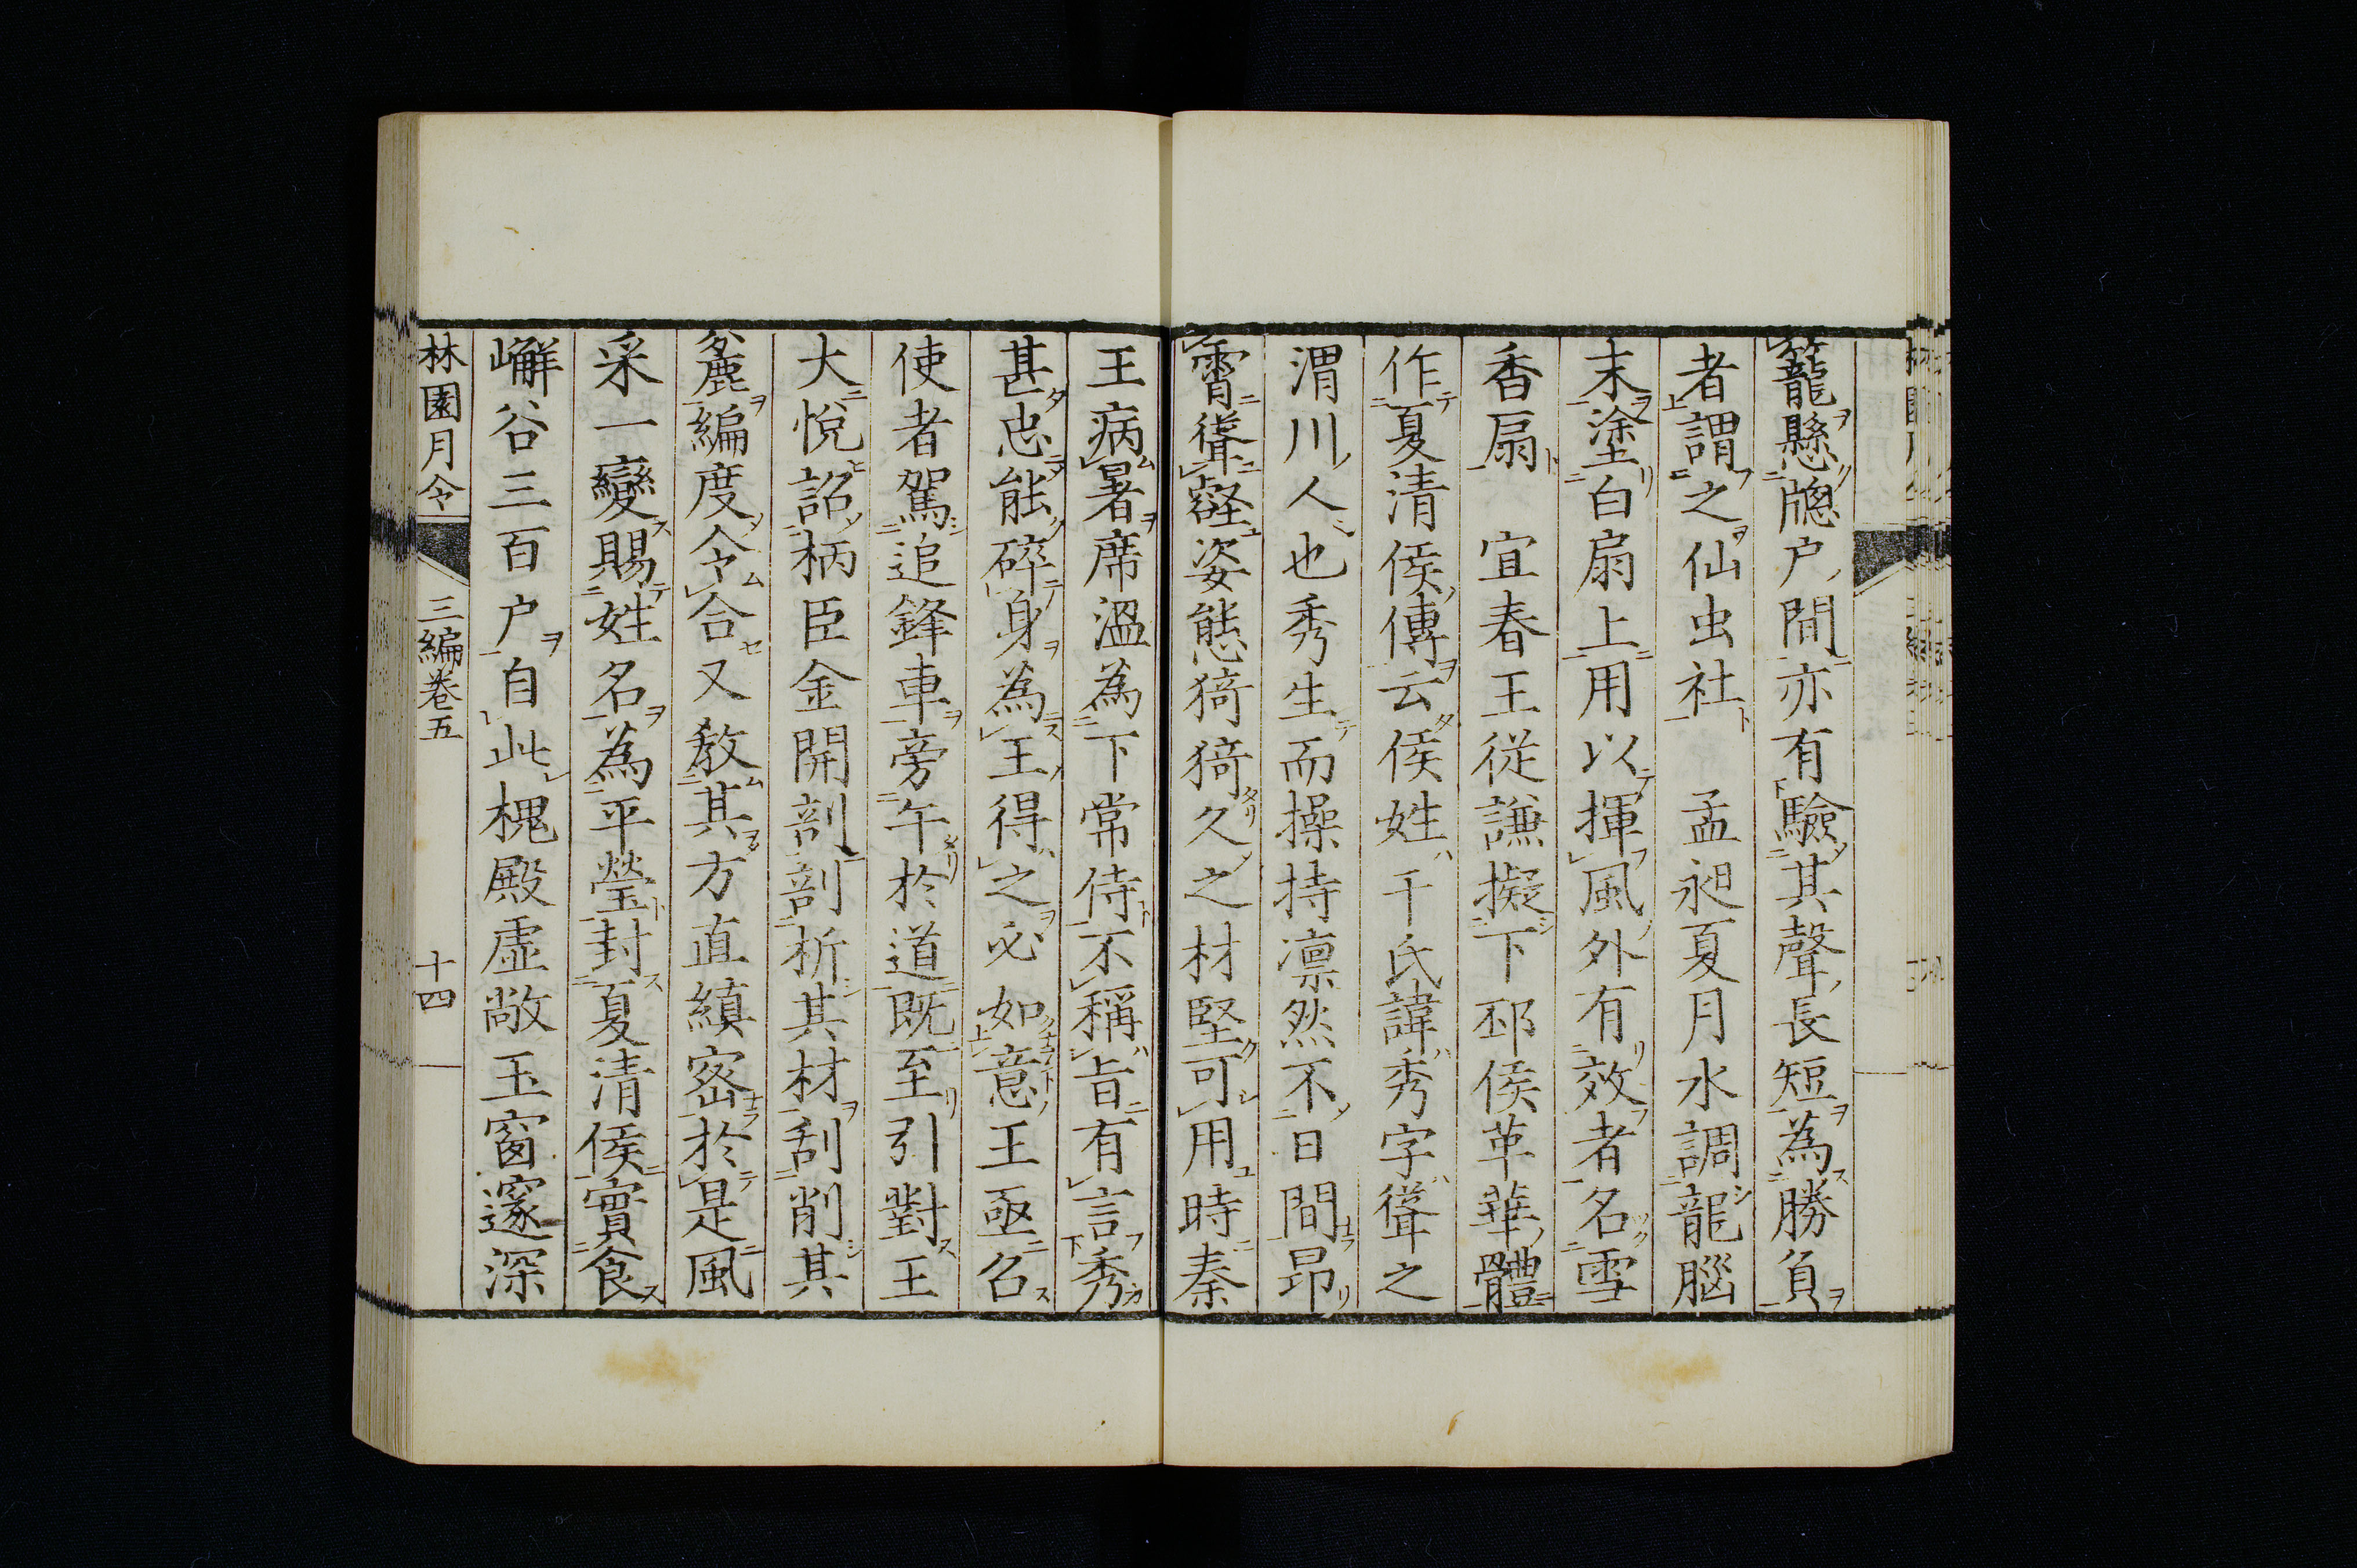 籠懸牕户間亦有驗其聲長短為勝負
者謂之仙虫社　孟昶夏月水調龍腦
末塗白扇上用以揮風外有效者名雪
香扇　宜春王從謙擬下邳侯革華體
作夏清侯傳云侯姓干氏諱秀字聳之
渭川人也秀生而操持凛然不日間昂
霄聳壑姿態猗猗久之材堅可用時秦
王病暑席溫為下常侍不稱旨有言秀
甚忠能碎身為王得之必如意王亟召
使者駕追鋒車旁午於道既至引對王
大悅詔柄臣金開剖剖析其材刮削其
麄編度令合又教其方直縝密於是風
采一變賜姓名為平瑩封夏清侯實食
嶰谷三百户自此槐殿虚敞玉窗邃深
林園月令　三編卷五　十四